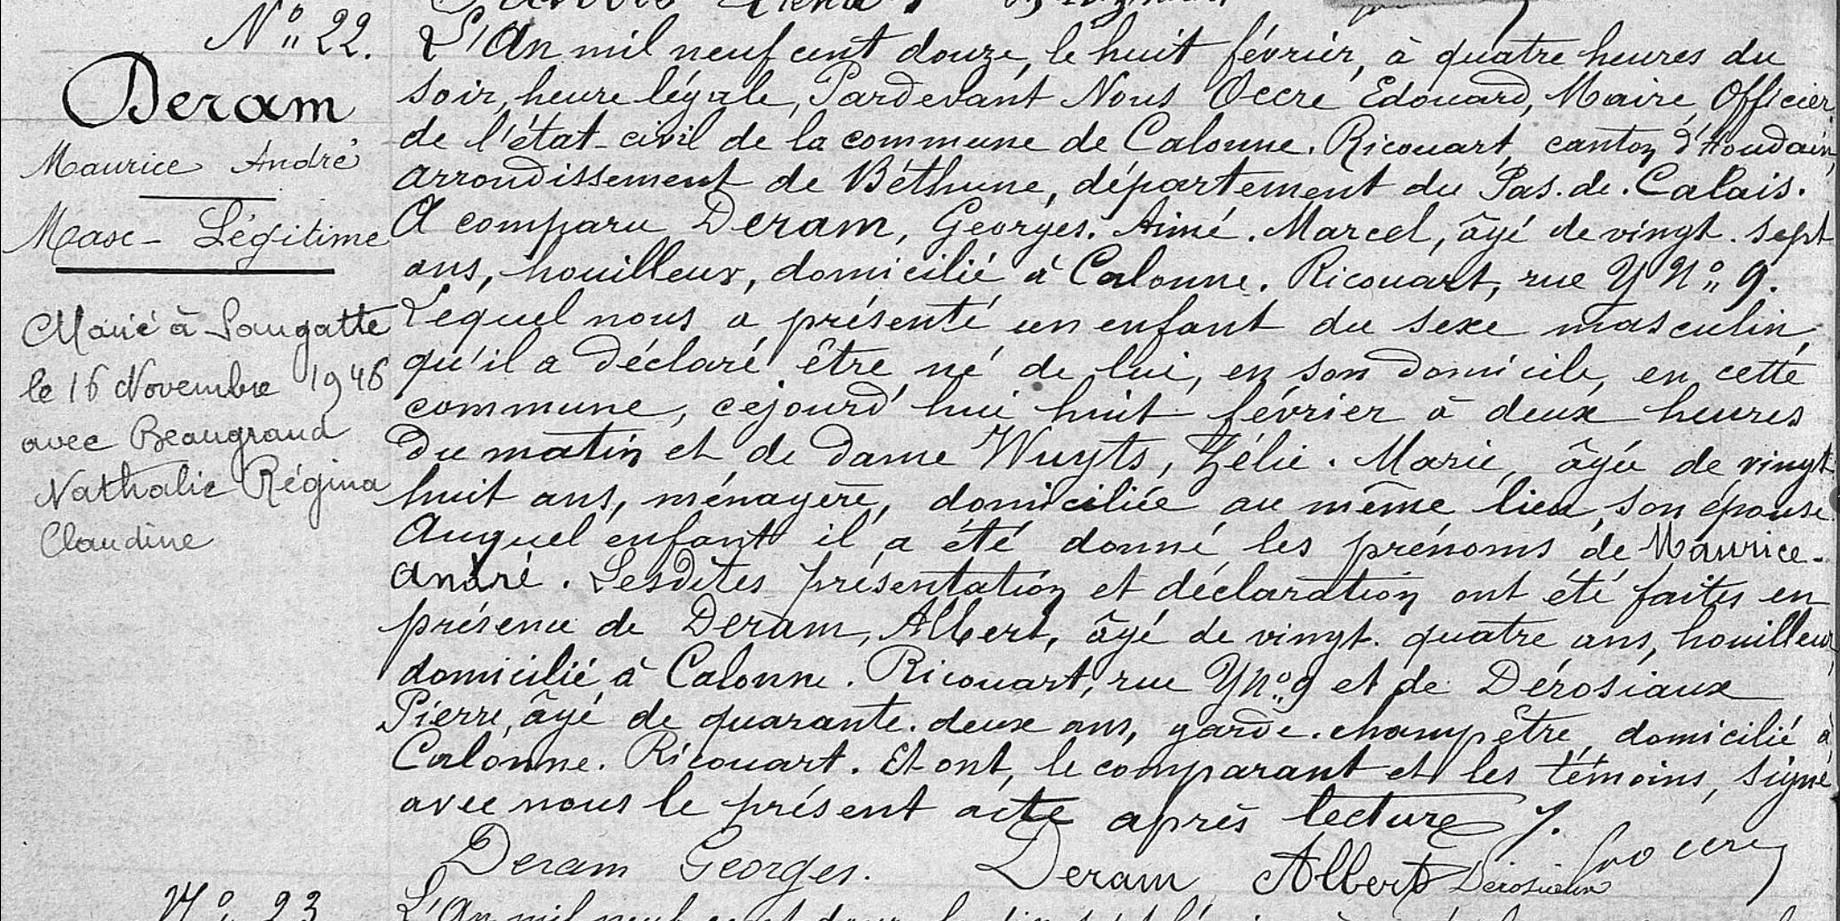 N° 22.
Deram
Maurice André
Masc - Légitime
Marié à Sangatte
le 16 Novembre 1946
avec Beaugrand
Nathalie Régina
Claudine
L'An mil neuf cent douze, le huit février, à quatre heures du
soir, heure légale, Pardevant Nous Occre Edouard, Maire, Officier
de l'état-civil de la commune de Calonne-Ricouart, canton d'Houdain,
arrondissement de Béthune, département du Pas-de-Calais.
A comparu Deram, Georges-Aimé-Marcel, âgé de vingt-sept
ans, houilleur, domicilié à Calonne-Ricouart, rue Y N° 9.
Lequel nous a présenté un enfant du sexe masculin,
qu'il a déclaré être né de lui, en son domicile, en cette
commune, cejourd'hui huit février à deux heures
du matin et de dame Wuyts, Zélie-Marie, âgée de vingt
huit ans, ménagère, domiciliée au même lieu, son épouse
Auquel enfant il a été donné les prénoms de Maurice-
André. Lesdites présentation et déclaration ont été faites en
présence de Deram, Albert, âgé de vingt-quatre ans, houilleur,
domicilié à Calonne-Ricouart, rue Y N° 9 et de Dérosiaux
Pierre, âgé de quarante-deux ans, garde-champêtre, domicilié à
Calonne-Ricouart. Et ont, le comparant et les témoins, signé
avec nous le présent acte après lecture.
Deram Georges. Deram Albert Dérosiaux
N° 23
L'An mil neuf cent douze